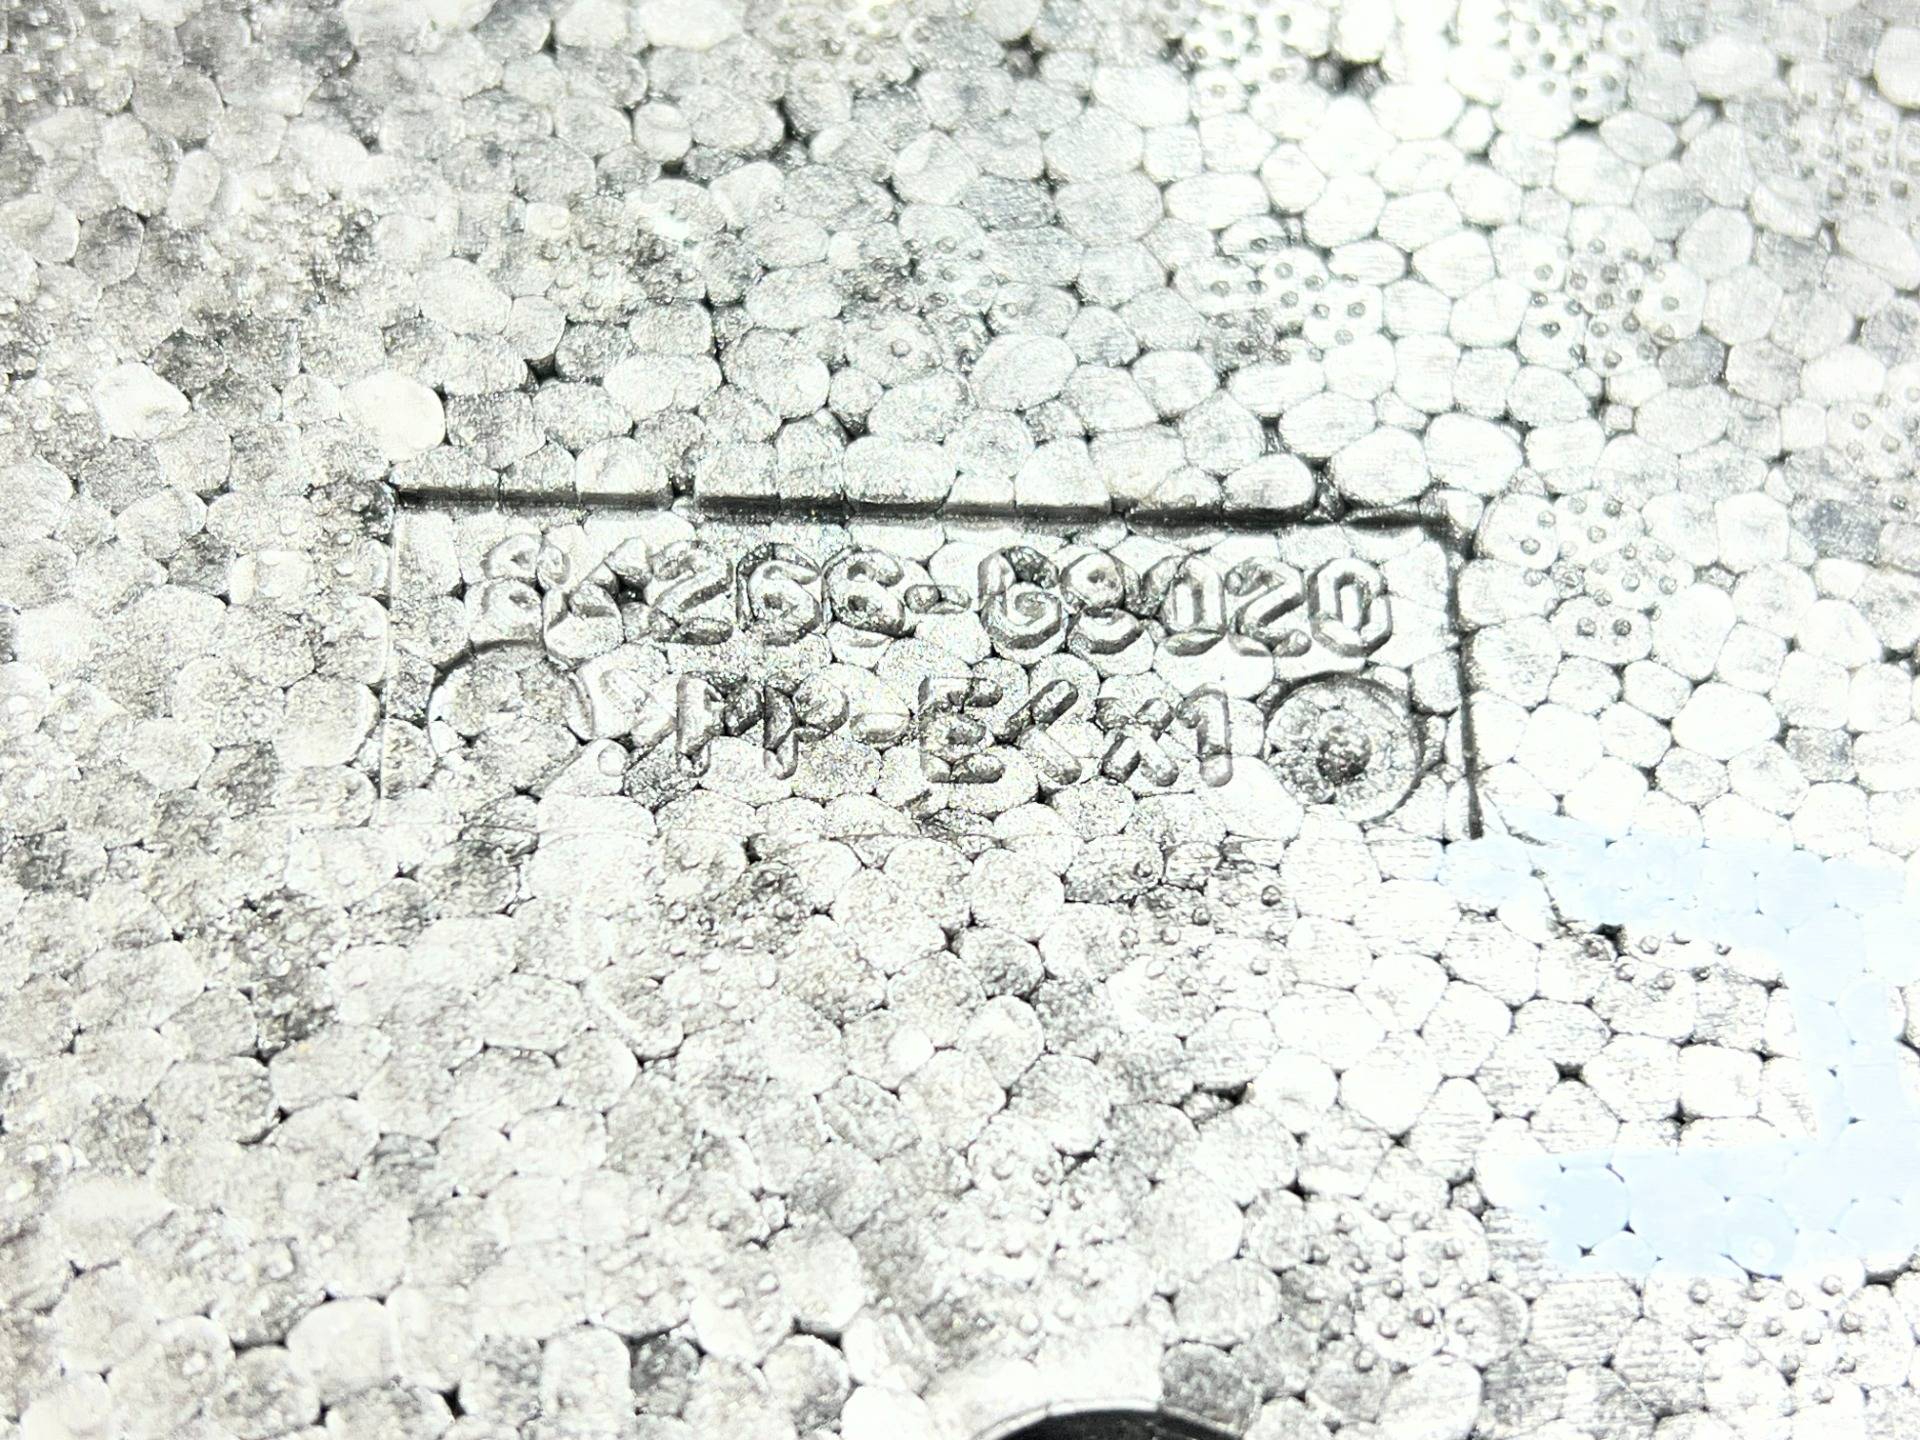 64266-68020
>PP-E<x1